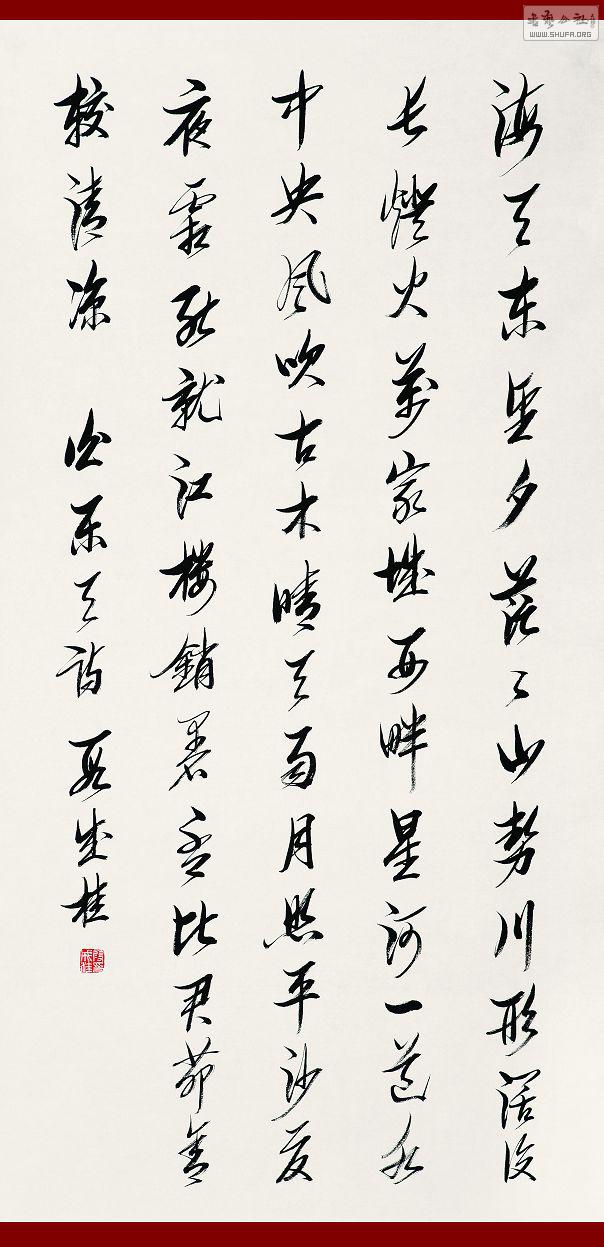 海天东望夕茫〻山势川形阔复
长燈火萬家城四畔星河一道水
中央风吹古木晴天雨月照平沙夏
夜霜能就江楼销暑否比君茅舍
较清凉 白乐天诗 段成桂
WWW.SHUFA.ORG